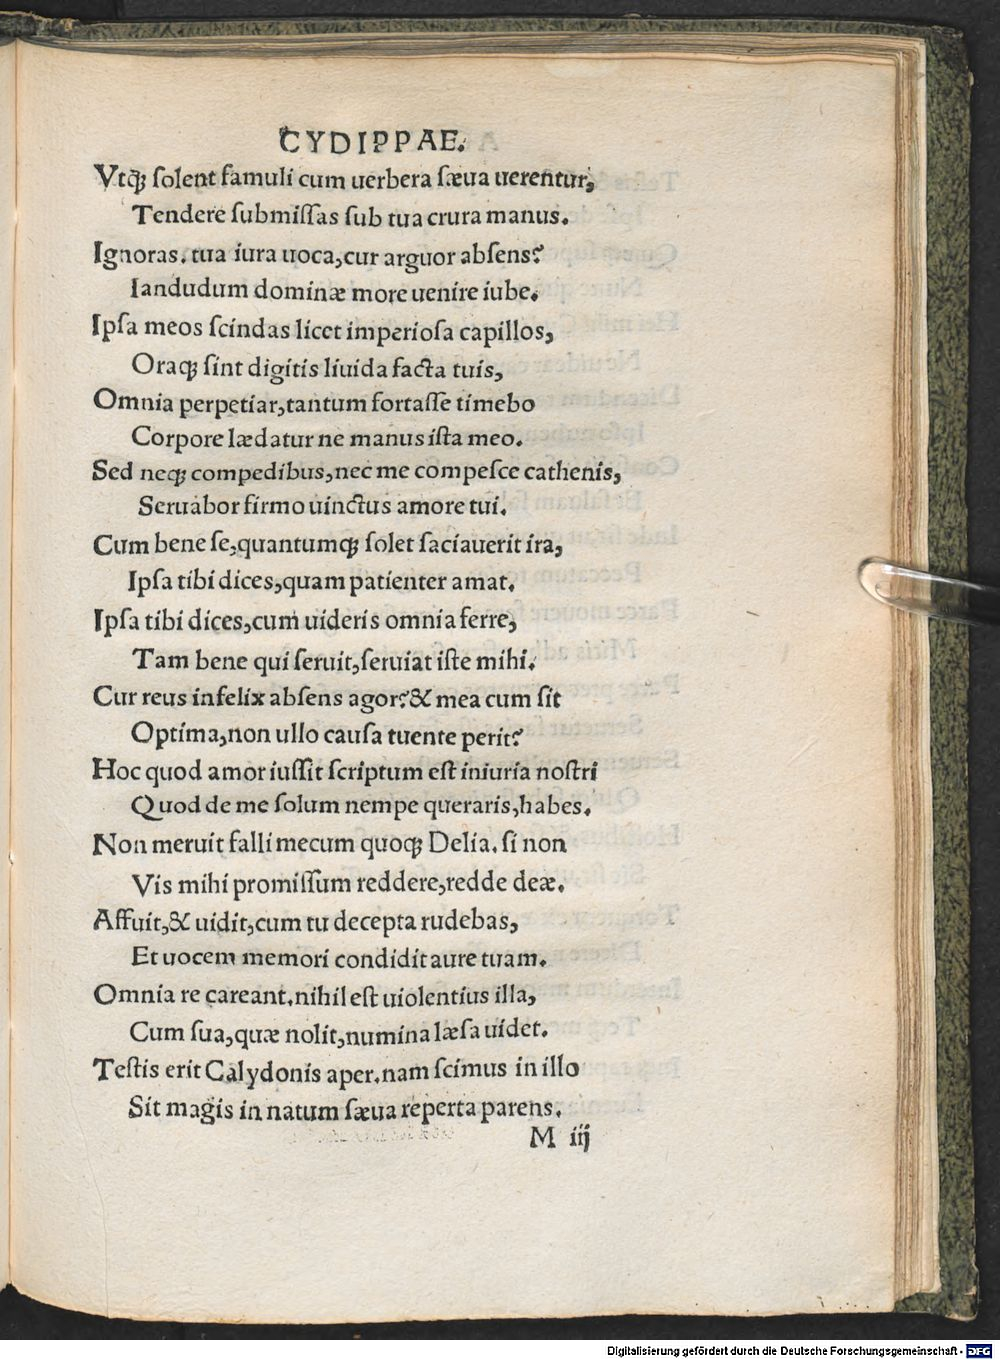 CYDIPPAE.
Vtqꝫ ſolent famuli cum uerbera ſæua uerentur,
Tendere ſubmiſſas ſub tua crura manus.
Ignoras. tua iura uoca, cur arguor abſens?
Iandudum dominæ more uenire iube.
Ipſa meos ſcindas licet imperioſa capillos,
Oraqꝫ ſint digitis liuida facta tuis,
Omnia perpetiar, tantum fortaſſe timebo
Corpore lædatur ne manus iſta meo.
Sed neqꝫ compedibus, nec me compeſce cathenis,
Seruabor firmo uinctus amore tui.
Cum bene ſe, quantumqꝫ ſolet ſaciauerit ira,
Ipſa tibi dices, quam patienter amat.
Ipſa tibi dices, cum uideris omnia ferre,
Tam bene qui ſeruit, ſeruiat iſte mihi.
Cur reus infelix abſens agor? & mea cum ſit
Optima, non ullo cauſa tuente perit?
Hoc quod amor iuſſit ſcriptum eſt iniuria noſtri
Quod de me ſolum nempe queraris, habes.
Non meruit falli mecum quoqꝫ Delia. ſi non
Vis mihi promiſſum reddere, redde deæ.
Affuit, & uidit, cum tu decepta rudebas,
Et uocem memori condidit aure tuam.
Omnia re careant. nihil eſt uiolentius illa,
Cum ſua, quæ nolit, numina læſa uidet.
Teſtis erit Calydonis aper. nam ſcimus in illo
Sit magis in natum ſæua reperta parens.
M iij
Digitalisierung gefördert durch die Deutsche Forschungsgemeinschaft - DFG